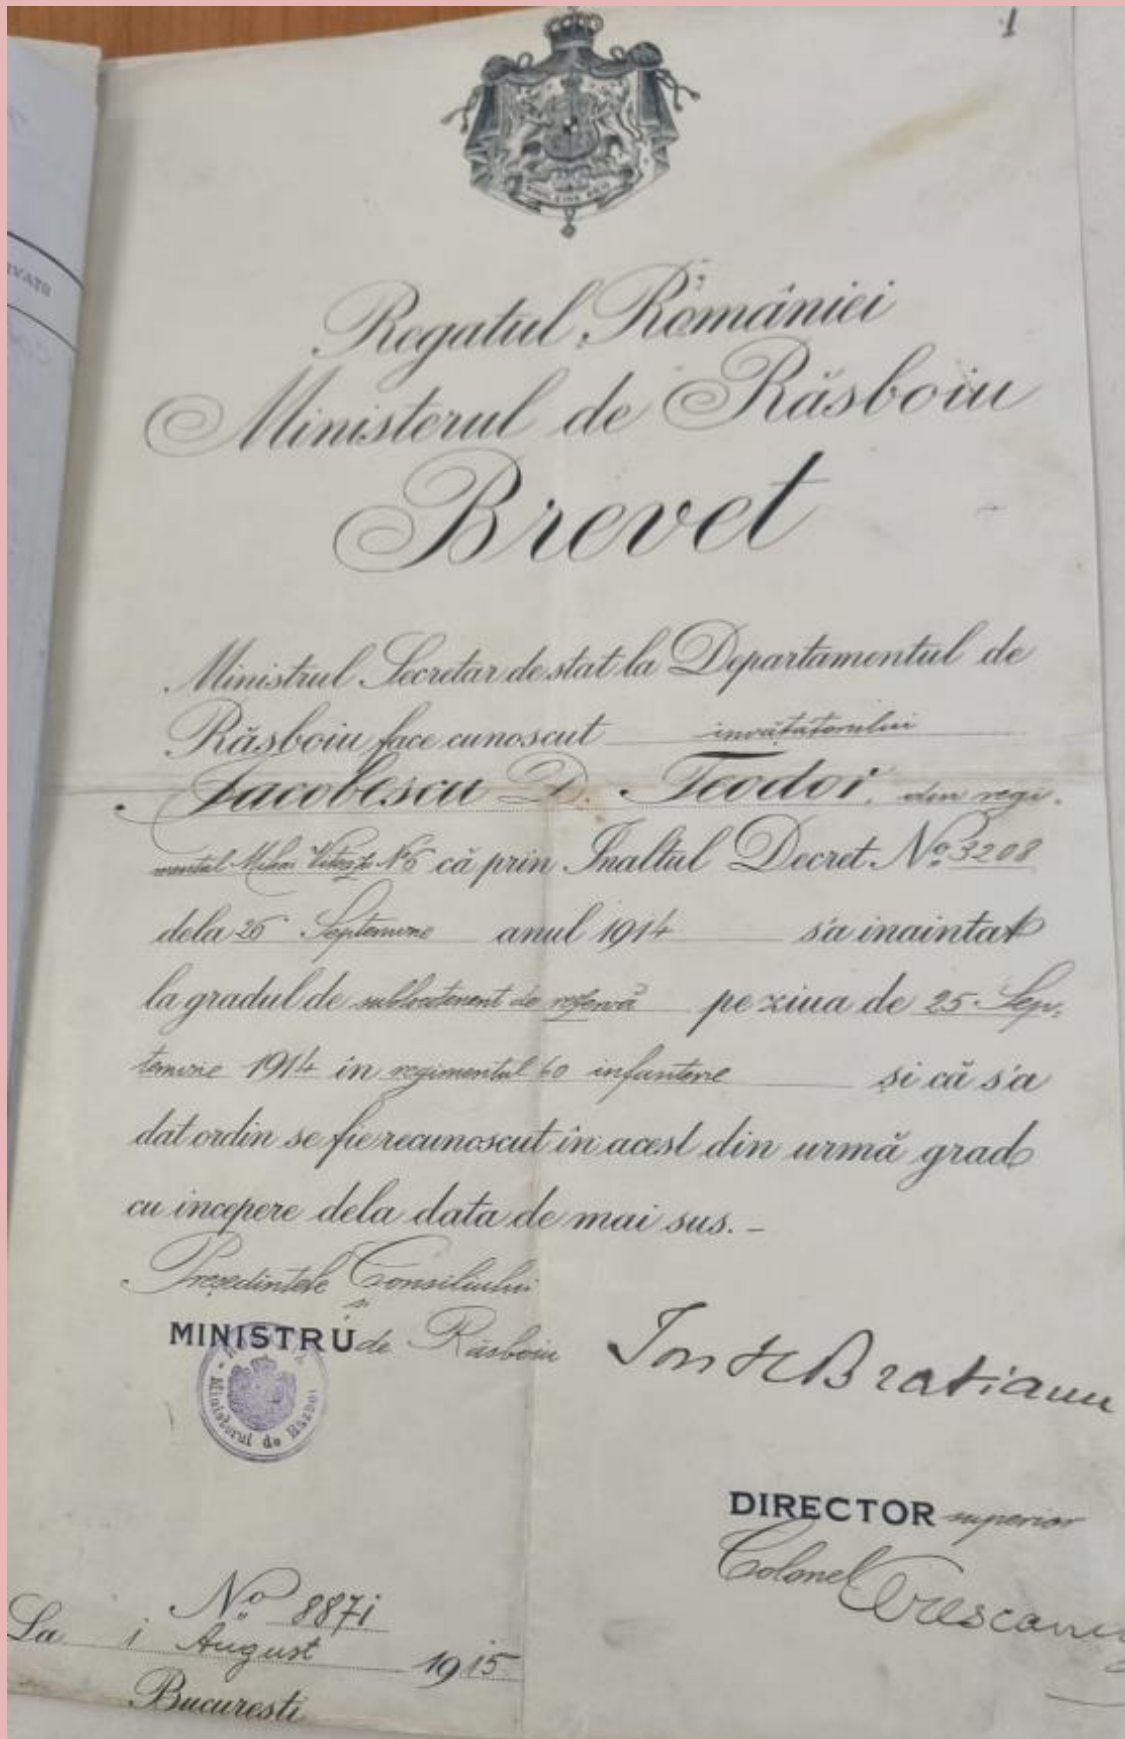 1
Regatul României
Ministerul de Răsboiu
Brevet
Ministrul Secretar de stat la Departamentul de
Răsboiu face cunoscut învățătorului
Iacobescu D. Teodor, din regi-
mentul Mihai Viteazu No 6 că prin Inaltul Decret No 3208
dela 26 Septemvrie anul 1914 s'a inaintat
la gradul de sublocotenent de rezervă pe ziua de 25 Sep-
temvrie 1914 in regimentul 60 infanterie și că s'a
dat ordin se fie recunoscut in acest din urmă grad
cu incepere dela data de mai sus. -
Președintele Consiliului
și
MINISTRU de Răsboiu
Ministerul de Război
Ion I C Bratianu
DIRECTOR superior
Colonel
No 8871
La 1 August 1915
Bucuresti